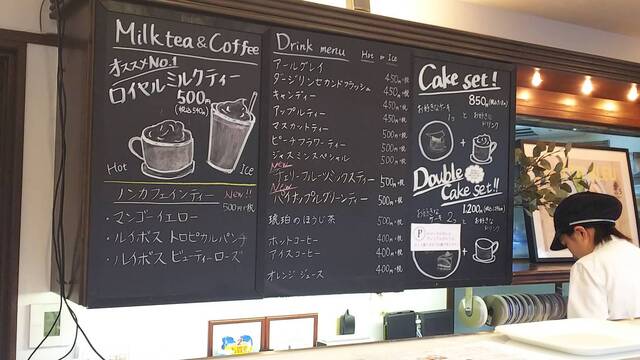 Milktea & Coffee
オススメNo.1
ロイヤルミルクティー
500円
(税込540円)
Hot
Ice
ノンカフェインティー New!!
500円+税
・マンゴーイエロー
・ルイボス トロピカルパンチ
・ルイボス ビューティーローズ
Drink menu Hot or Ice
アールグレイ 450円+税
ダージリンセカンドフラッシュ 450円+税
キャンディー 450円+税
アップルティー 450円+税
マスカットティー 500円+税
ピーチフラワーティー 500円+税
ジャスミンスペシャル 500円+税
New
チェリーフルーツミックスティー 500円+税
New
パイナップルグリーンティー 500円+税
琥珀のほうじ茶 500円+税
ホットコーヒー 400円+税
アイスコーヒー 400円+税
オレンジジュース 400円+税
Cake set!
850円
お好きなケーキ 1つ と お好きなドリンク
+
Double
Cake set!!
1,200円
お好きなケーキ 2つ と お好きなドリンク
P
+